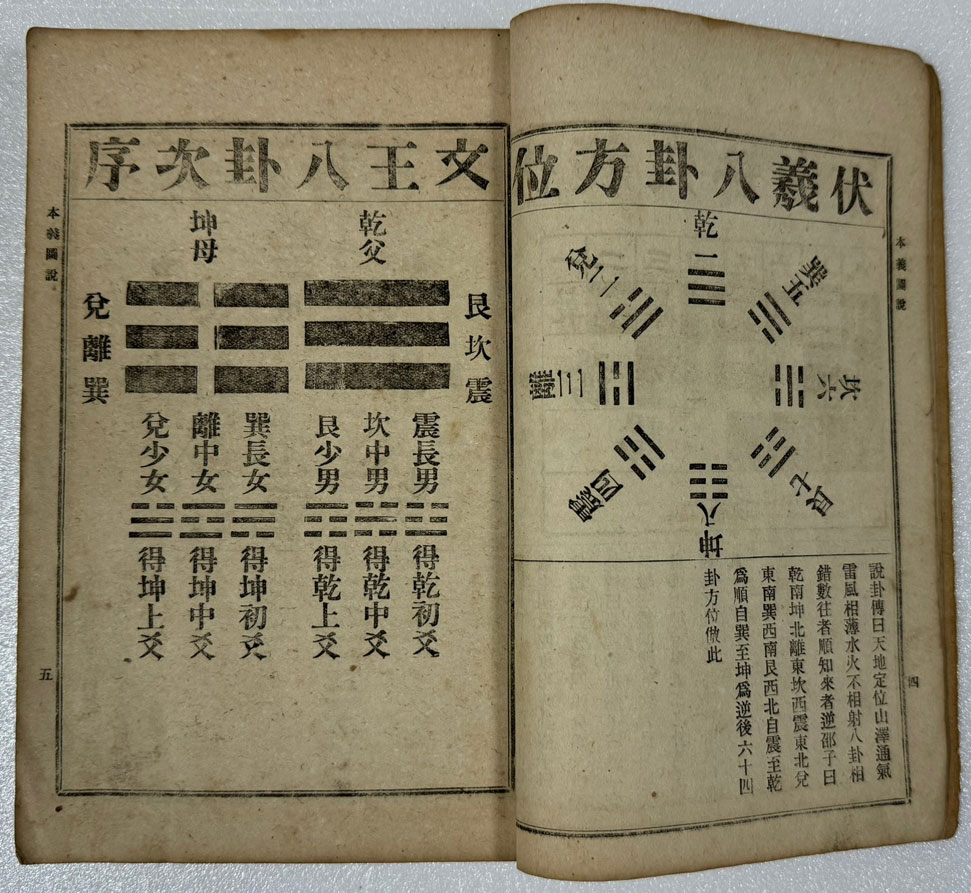 本義圖說
伏羲八卦方位
乾一
兌二
離三
震四
巽五
坎六
艮七
坤八
說卦傳曰天地定位山澤通氣
雷風相薄水火不相射八卦相
錯數往者順知來者逆邵子曰
乾南坤北離東坎西震東北兌
東南巽西南艮西北自震至乾
爲順自巽至坤爲逆後六十四
卦方位倣此
四
文王八卦次序
乾父
坤母
艮坎震
兌離巽
震長男
得乾初爻
坎中男
得乾中爻
艮少男
得乾上爻
巽長女
得坤初爻
離中女
得坤中爻
兌少女
得坤上爻
本義圖說
五